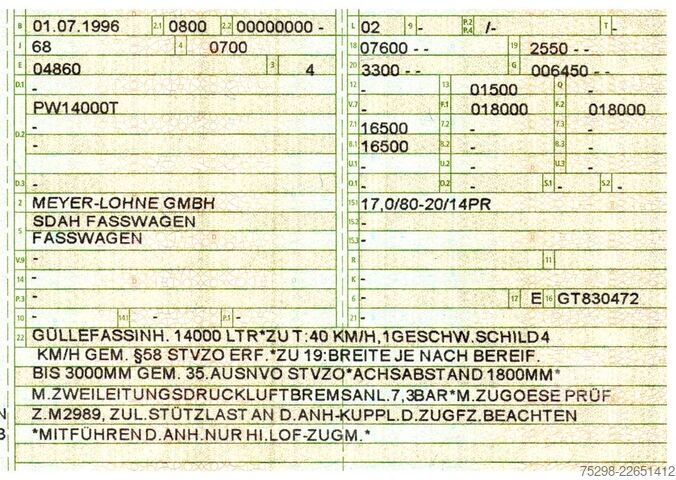 B 01.07.1996 2.1 0800 2.2 00000000 - L 02 9 - P.2 P.4 /- T -
J 68 4 0700 18 07600 - - 19 2550 - -
E 04860 3 4 20 3300 - - G 006450 - -
D.1 - 12 - 13 01500 Q -
PW14000T V.7 - F.1 018000 F.2 018000
- 7.1 16500 7.2 - 7.3 -
D.2 - 8.1 16500 8.2 - 8.3 -
U.1 - U.2 - U.3 -
D.3 - O.1 - O.2 - S.1 - S.2 -
2 MEYER-LOHNE GMBH 15.1 17,0/80-20/14PR
5 SDAH FASSWAGEN 15.2 -
FASSWAGEN 15.3 -
V.9 - R - 11
14 - K -
P.3 - 6 - 17 E 16 GT830472
10 - 14.1 - P.1 - 21 -
22 GÜLLEFASSINH. 14000 LTR*ZU T:40 KM/H,1GESCHW.SCHILD4
KM/H GEM. §58 STVZO ERF.*ZU 19:BREITE JE NACH BEREIF.
BIS 3000MM GEM. 35.AUSNVO STVZO*ACHSABSTAND 1800MM*
M.ZWEILEITUNGSDRUCKLUFTBREMSANL.7,3BAR*M.ZUGOESE PRÜF
N Z.M2989, ZUL.STÜTZLAST AN D.ANH-KUPPL.D.ZUGFZ.BEACHTEN
B *MITFÜHREN D.ANH.NUR HI.LOF-ZUGM.*
75298-22651412